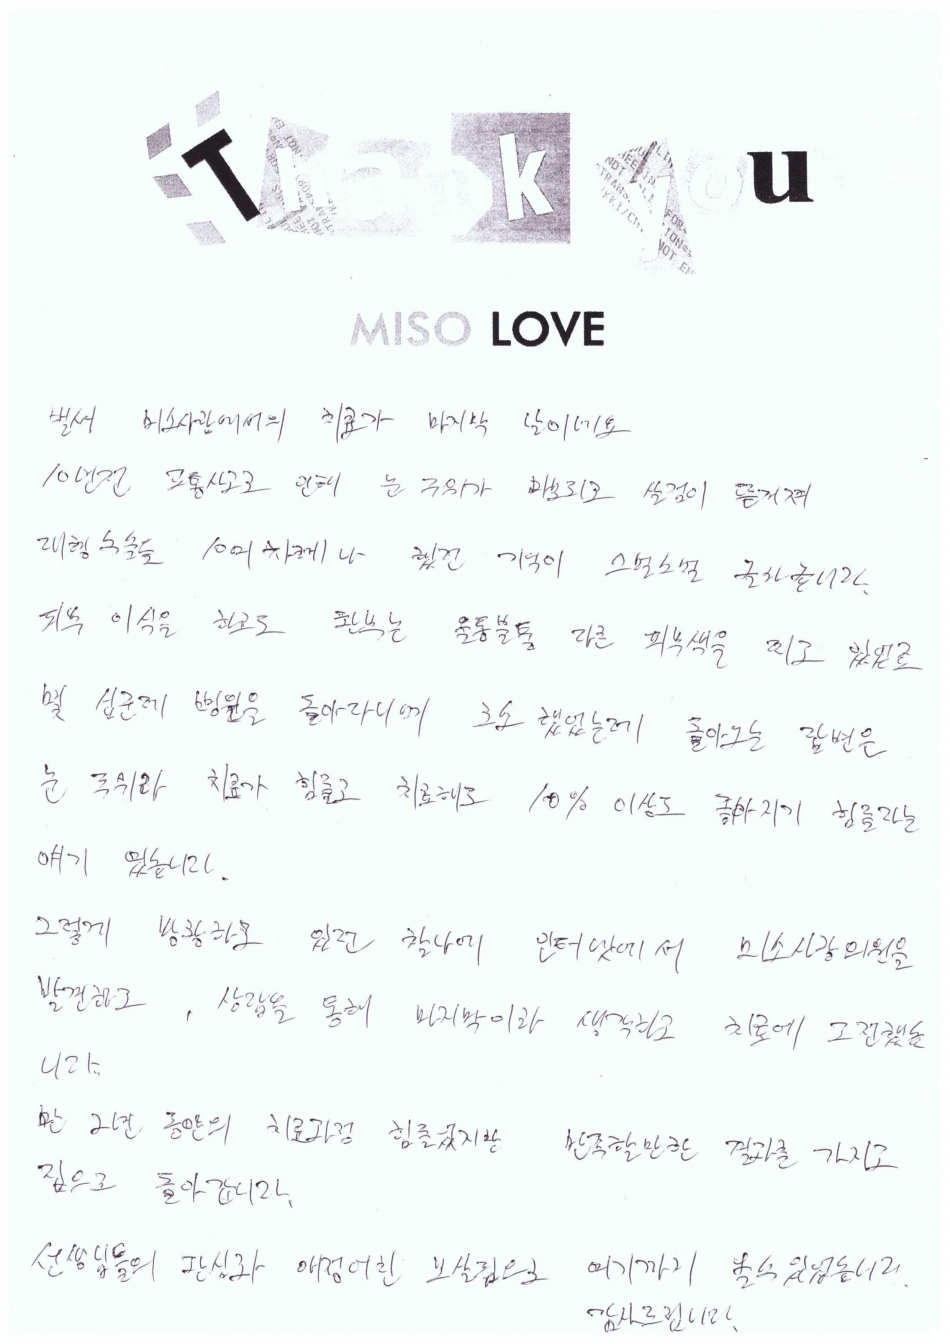 Thank you
MISO LOVE
벌써 미소사랑에서의 치료가 마지막 날이네요
10년전 교통사고로 인해 눈 주위가 마모되고 살점이 뜯겨져
대형수술을 10여 차례나 했던 기억이 스멀스멀
피부 이식을 하고도 환부는 울퉁불퉁 다른 피부색을 띠고 있었고
몇 십군데 병원을 돌아다니며 호소했었는데 돌아오는 답변은
눈 주위라 치료가 힘들고 치료해도 10% 이상도 좋아지기 힘들다는
얘기 였습니다.
그렇게 방황하고 있던 찰나에 인터넷에서 미소사랑의원을
발견하고, 상담을 통해 마지막이라 생각하고 치료에 도전했습
니다.
만 2년 동안의 치료과정 힘들었지만 만족할만한 결과를 가지고
집으로 돌아갑니다.
선생님들의 관심과 애정어린 보살핌으로 여기까지 올수있었습니다.
감사드립니다.